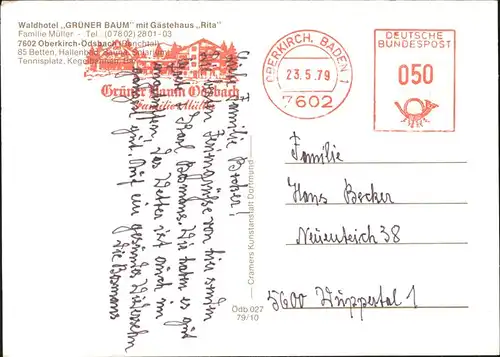 Waldhotel „GRÜNER BAUM" mit Gästehaus „Rita"
Familie Müller - Tel. (07802) 2801-03
7602 Oberkirch-Ödsbach (Renchtal)
85 Betten, Hallenbad, Sauna, Solarium
Tennisplatz, Kegelbahnen
Grüner Baum Ödsbach
Familie Müller
OBERKIRCH, BADEN 1
23.5.79
7602
DEUTSCHE
BUNDESPOST
050
Liebe Familie
von hier senden
Karl Bosmans. Wir haben es gut
Das Wetter ist auch im
gut. Auf ein gesundes Wiedersehn
Die Bosmans
Cramers Kunstanstalt Dortmund
Ödb 027
79/10
Familie
Hans Becker
Neuenteich 38
5600 Wuppertal 1